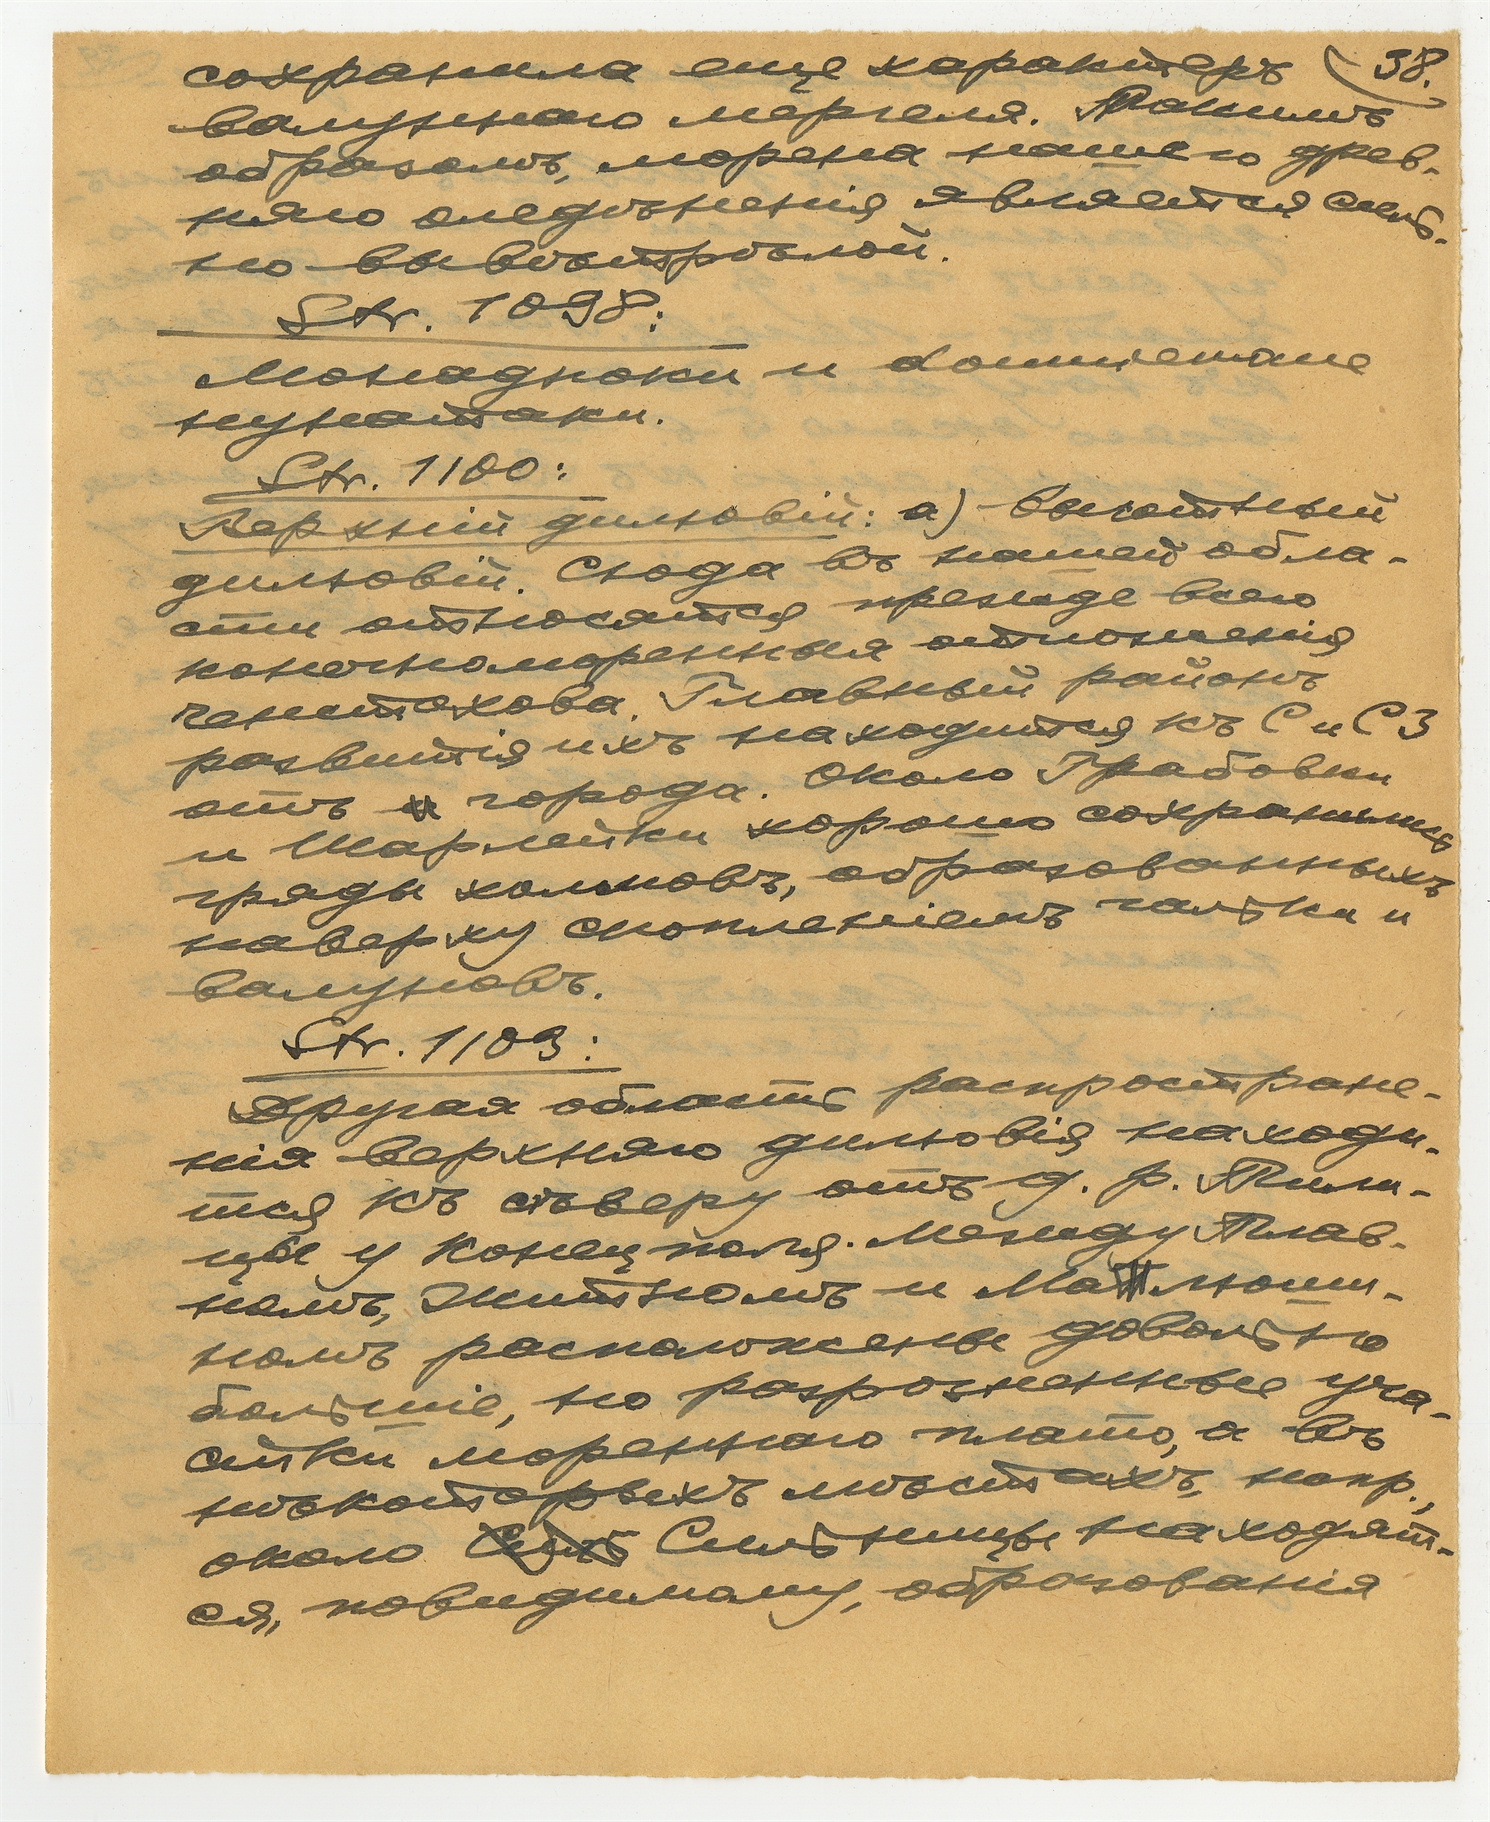 сохранила еще характеръ (38.
валуннаго мергеля. Такимъ
образомъ, морена нашего древ-
няго оледѣненія является силь-
но вывѣтрѣлой.
Str. 1098:
Монадноки и
нунатаки.
Str. 1100:
Верхній дилювій: а) высотный
дилювій. Сюда въ нашей обла-
сти относятся прежде всего
конечноморенныя отложенія
Ченстохова. Главный районъ
развитія ихъ находится къ С и СЗ
отъ города. Около Грабовки
и Шарлейки хорошо сохранились
гряды холмовъ, образованныхъ
наверху скопленіемъ гальки и
валуновъ.
Str. 1103:
Другая область распростране-
нія верхняго дилювія находи-
тся къ сѣверу отъ д. р. Пили-
цы у Конецполя. Между Плав-
номъ, Житномъ и Малюши-
номъ расположены довольно
большіе, но разрозненные уча-
стки мореннаго плато, а въ
нѣкоторыхъ мѣстахъ, напр.,
около Сильницы находят-
ся, повидимому, образованія